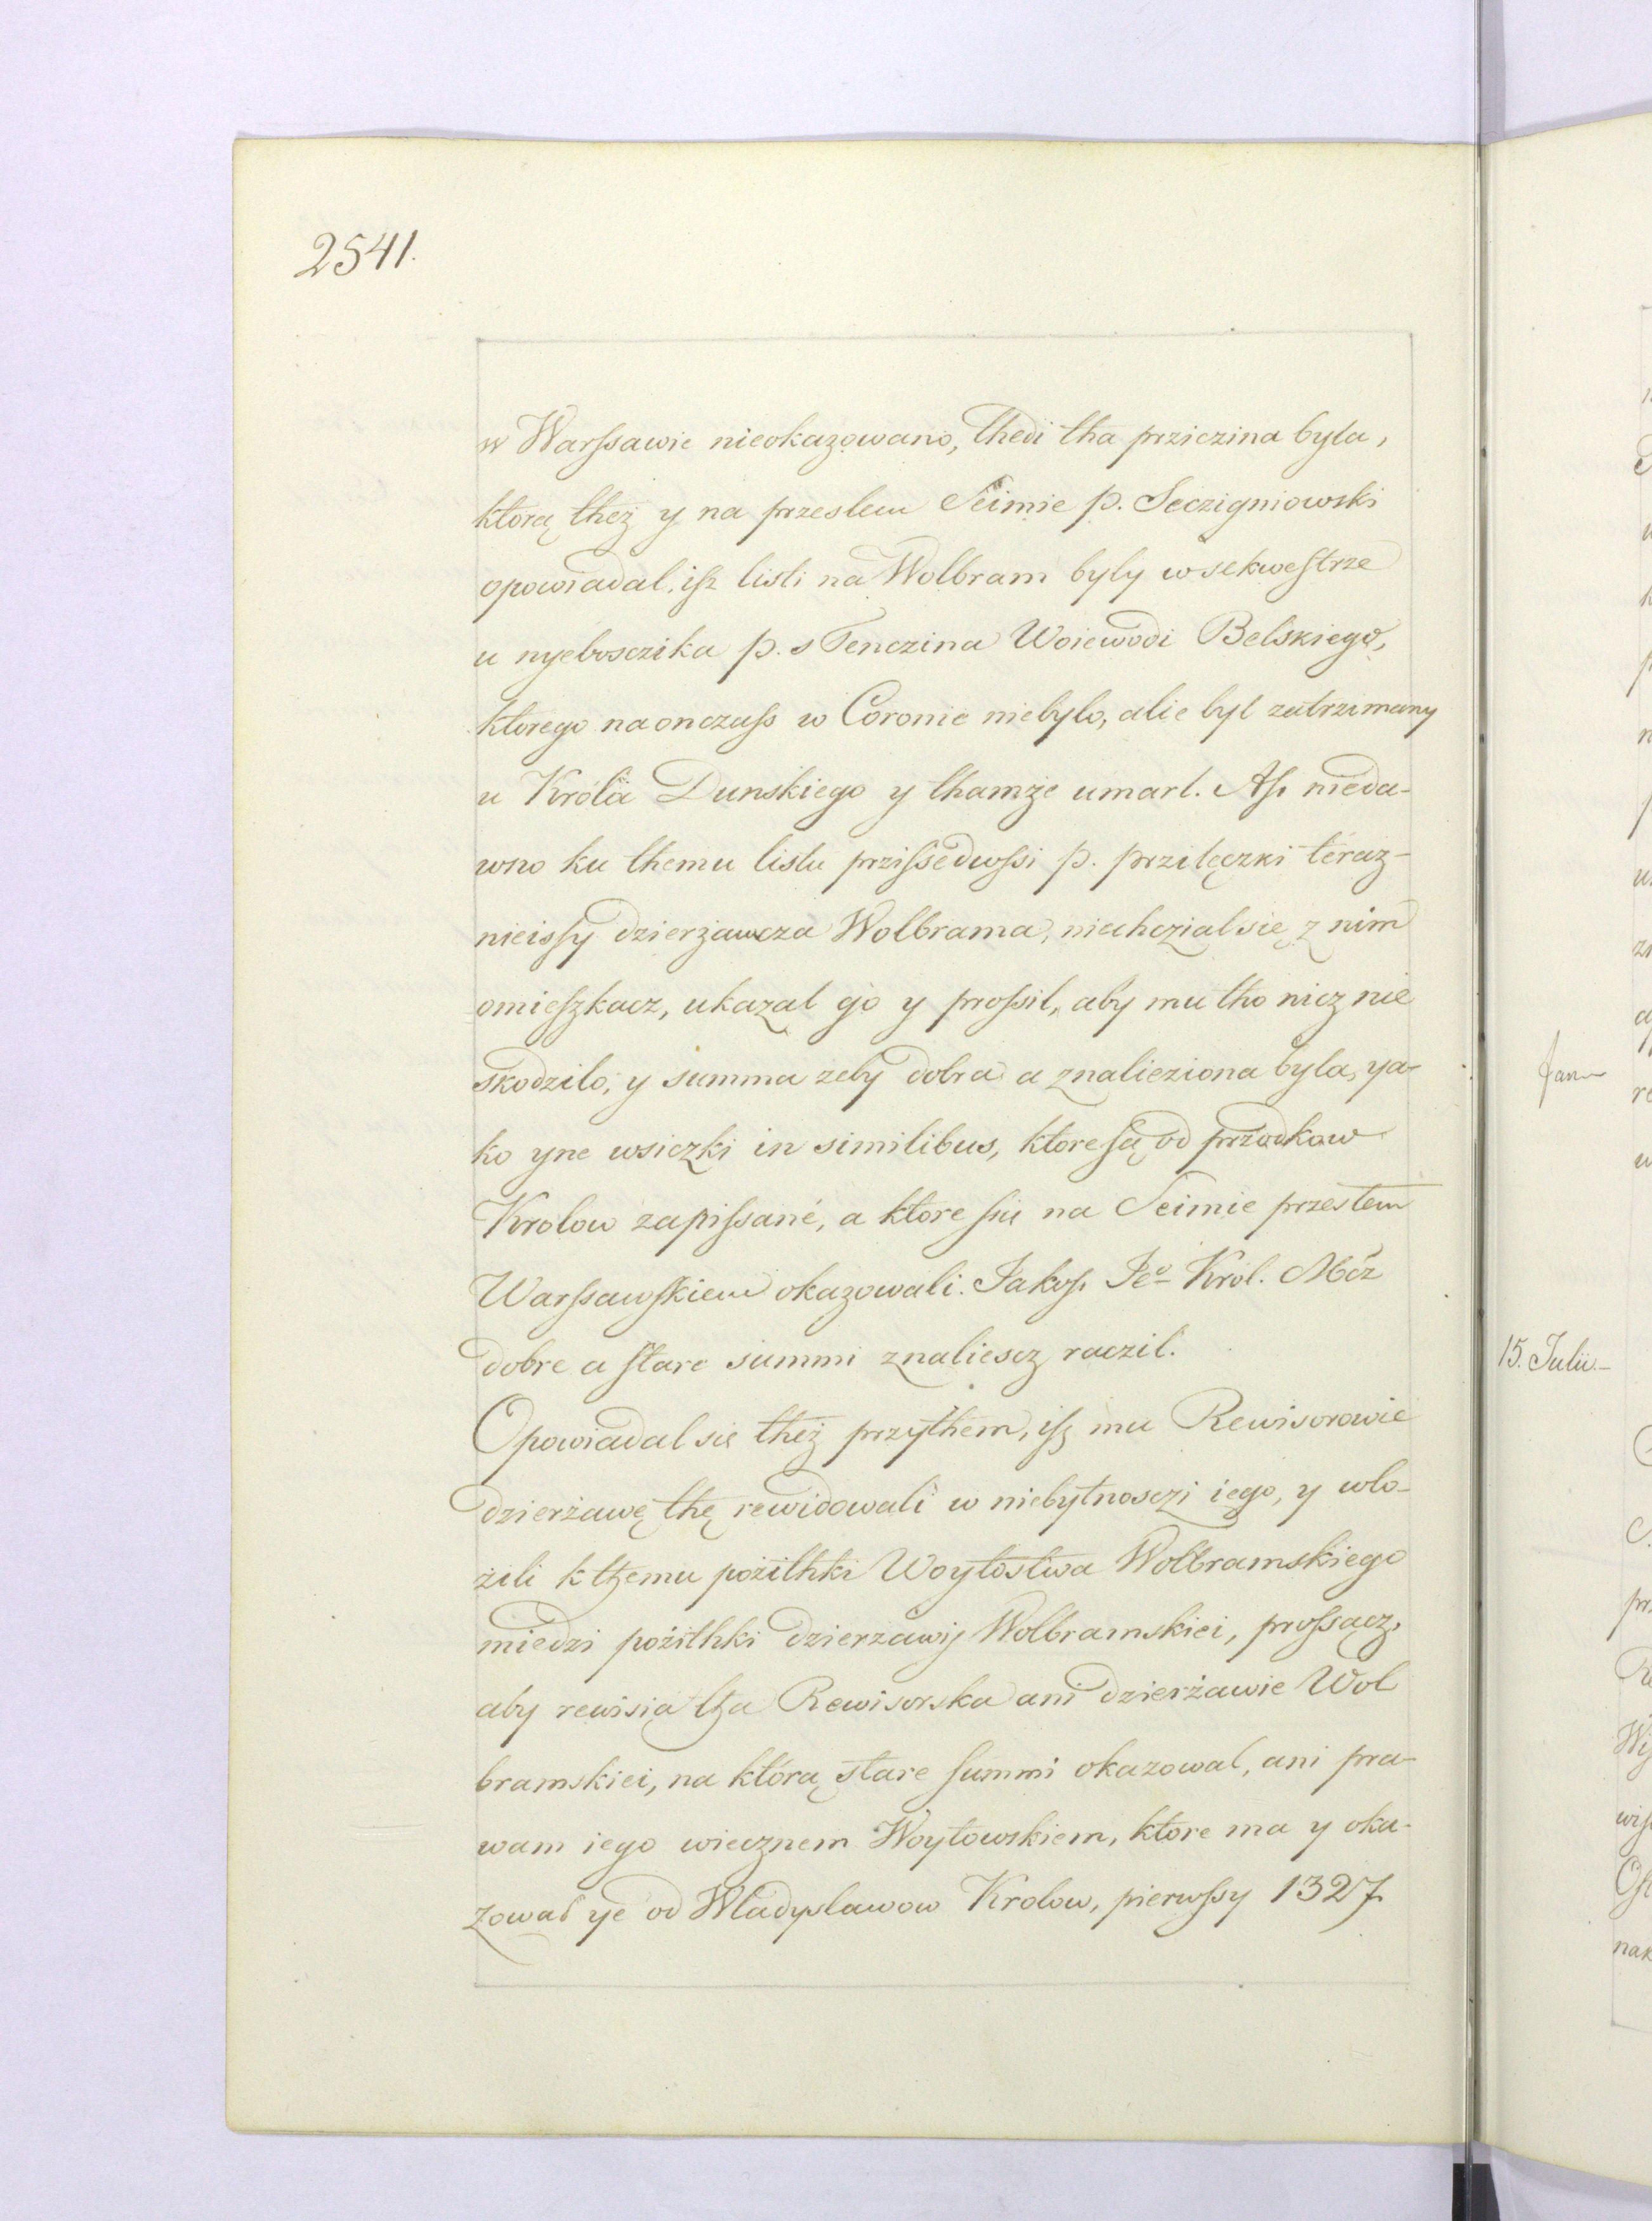 2541.
w Warſsawie nieokazowano, thedi tha prziczina byla,
ktorą theż y na przeslem Seimie p. Seczigniowski
opowiadal, iſz listi na Wolbram byly w sekweſtrze
u nyebosczika p. s Tenczina Woiewodi Belskiego,
ktorego naonczaſs w Coronie niebylo, alie byl zatrzimany
u Króla Dunskiego y thamże umarl. Aſz nieda-
wno ku themu listu prziſsedwſsi p. przilęczki téraz-
nieiſsy dzierżawcza Wolbrama, niechczial sie z nim
omieſzkacz, ukazal go y proſsil, aby mu tho nicz nie
skodzilo, y summa zeby dobra a znalieziona byla, ya-
ko yne wsiczki in similibus, ktore są od przodkow
Krolow zapiſsané, a ktore ſsię na Seimie przeslem
Warſsawſkiem okazowali. Jakoſz Jeo Krol. Mcz
dobre a ſtare summi znaliescz raczil.
Opowiadal sie theż przythem, iſz mu Rewisorowie
dzierżawę thę rewidowali w niebytnosczi iego, y wlo-
żili k themu pożithki Woytostwa Wolbramskiego
miedzi pożithki dzierżawy Wolbramskiei, proſsącz,
aby rewisia tha Rewisorska ani dzierżawie Wol
bramskiei, na którą stare ſummi okazowal, ani pra-
wam iego wiecznem Woytowskiem, ktore ma y oka-
zowal ye od Wladyslawow Krolow, pierwſsy 1327
15. Julii.